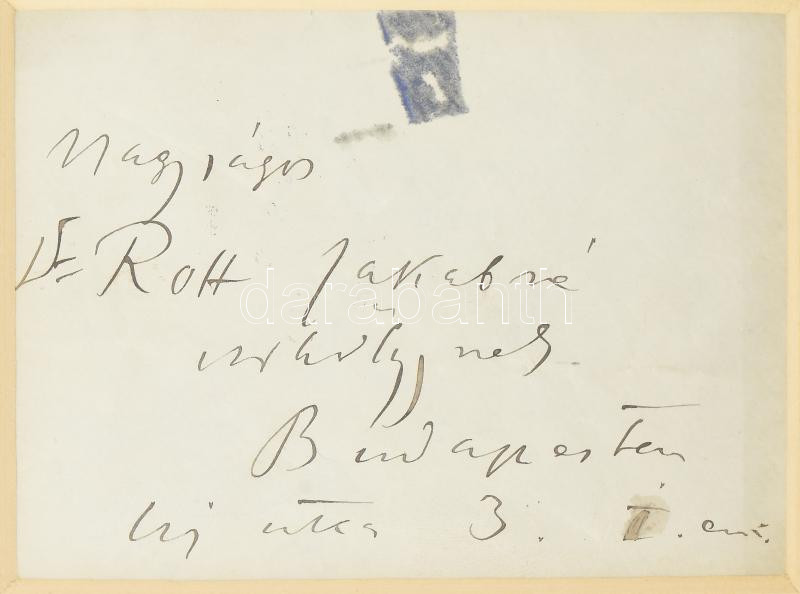 Nagyságos
Dr Rott Jakabné
úrhölgynek
Budapesten
Uj utca 3. I. em.
darabanth